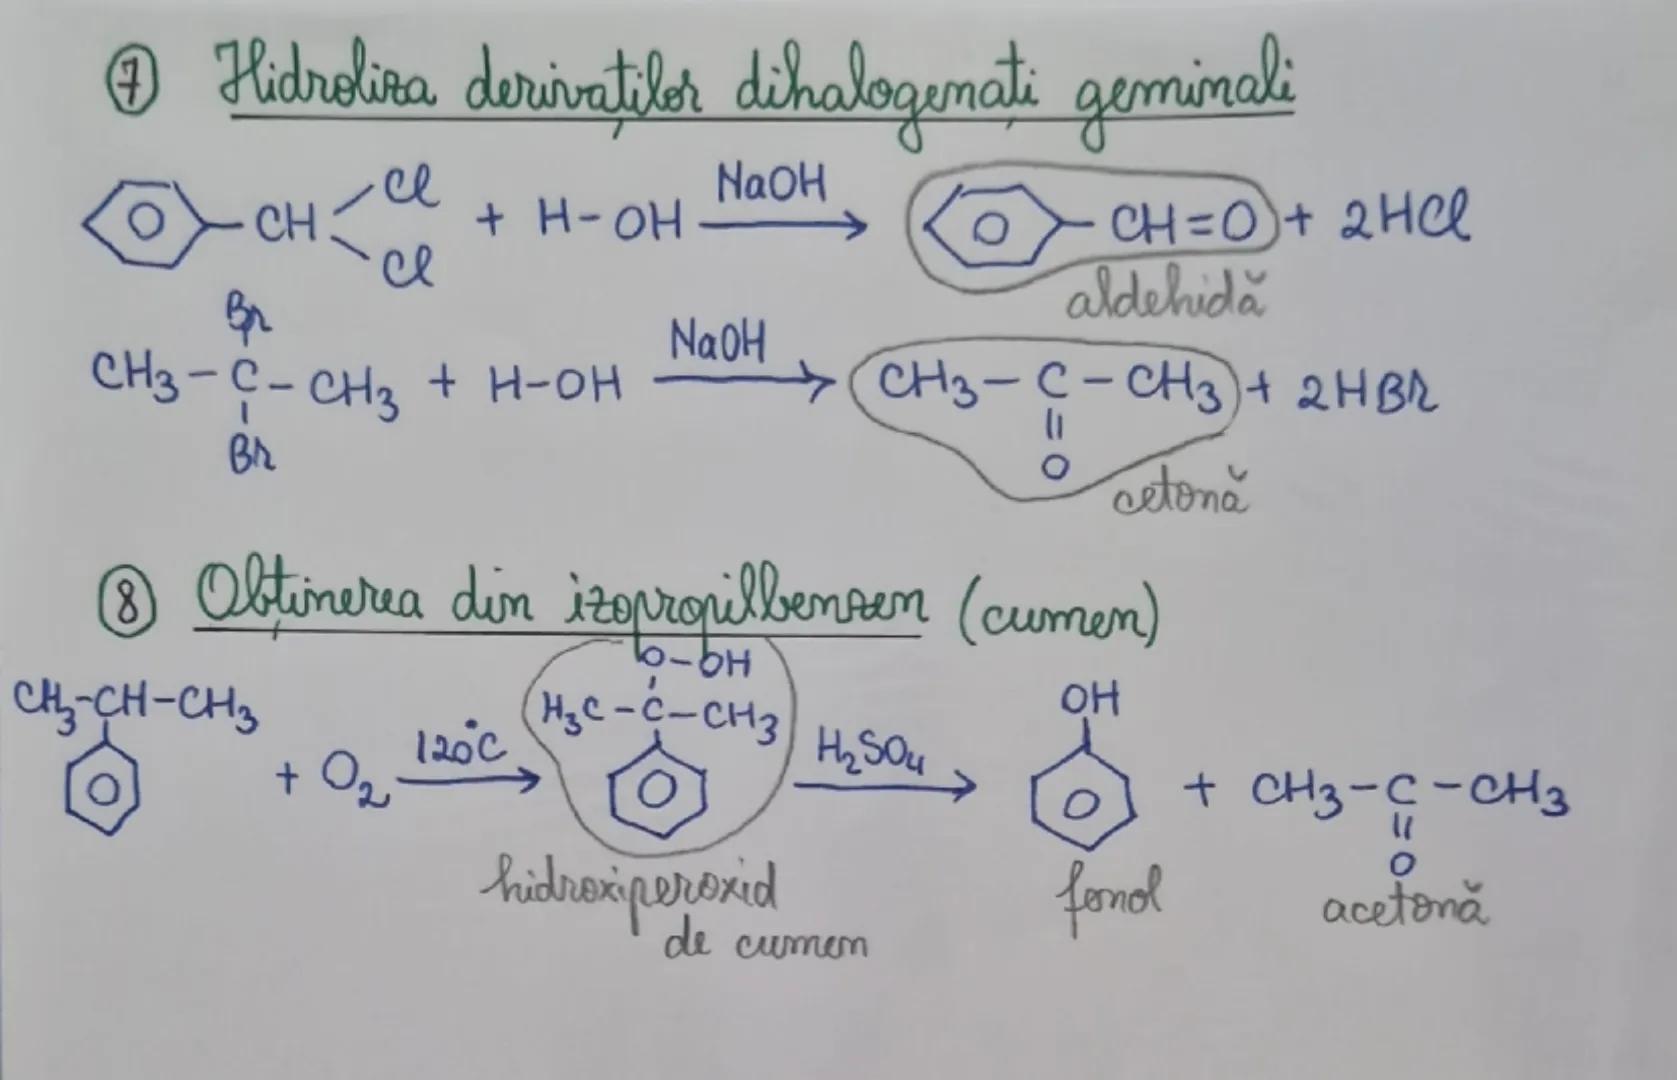 ⑦ Hidroliza derivaților dihalogenați geminali
CH Cl Cl + H-OH NaOH → CH=O + 2HCl
aldehidă
CH3-C-CH3 Br Br + H-OH NaOH → CH3-C-CH3 || O + 2HBr
cetonă
⑧ Obținerea din izopropilbenzen (cumen)
CH3-CH-CH3 + O2 120°C → O-OH H3C-C-CH3 H2SO4 → OH + CH3-C-CH3 || O
hidroxiperoxid de cumen
fenol
acetonă